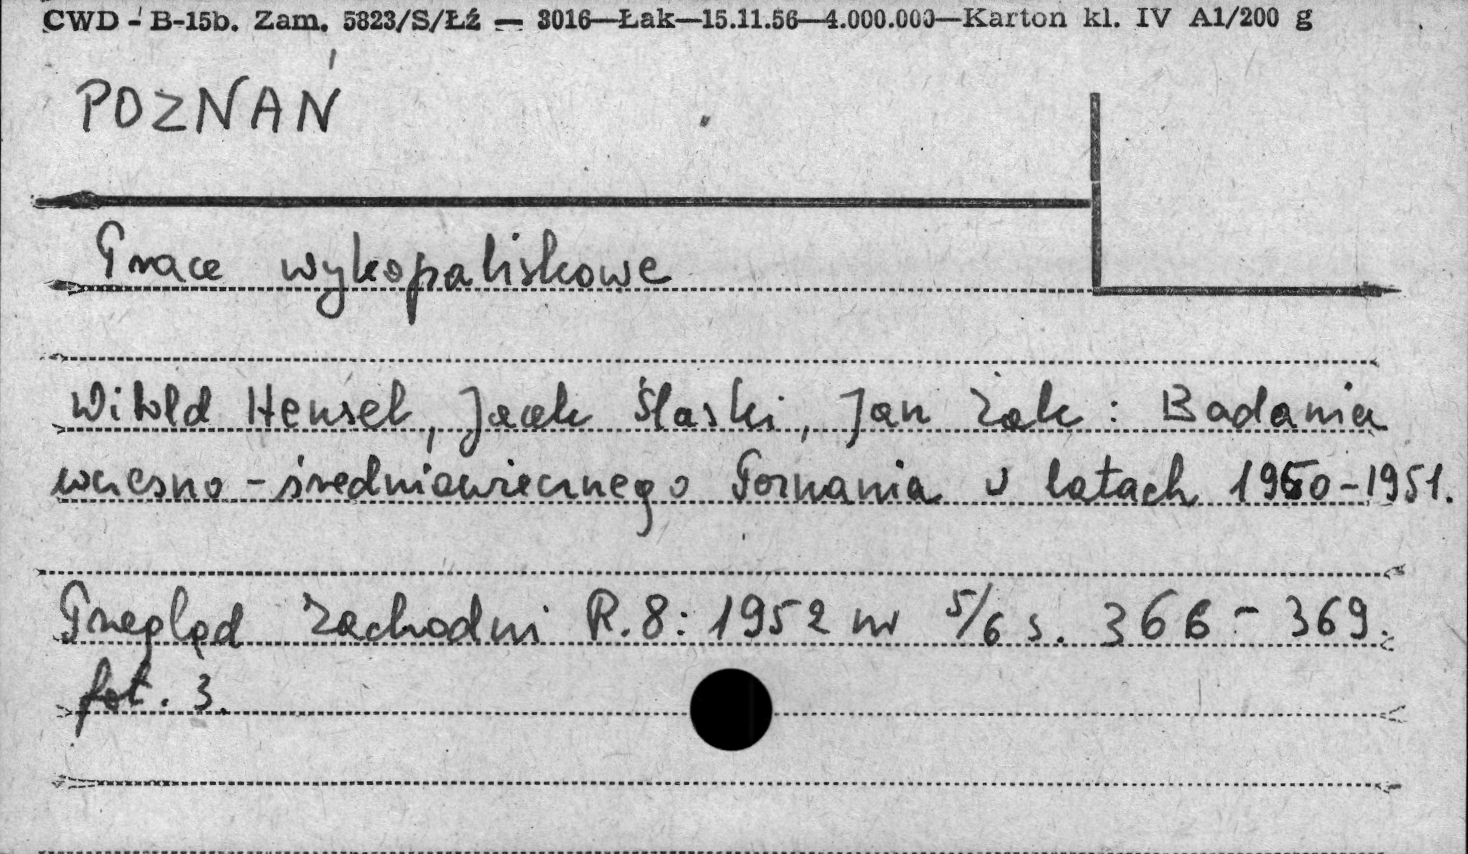 CWD - B-15b. Zam. 5823/S/Łź — 3016—Łak—15.11.56—4.000.000—Karton kl. IV A1/200 g
POZNAŃ
Prace wykopaliskowe
Witold Hensel, Jacek Ślaski, Jan Żak: Badania
wczesno-średniowiecznego Poznania w latach 1950-1951.
Przegląd Zachodni R.8: 1952 nr 5/6 s. 366-369.
fot. 3.